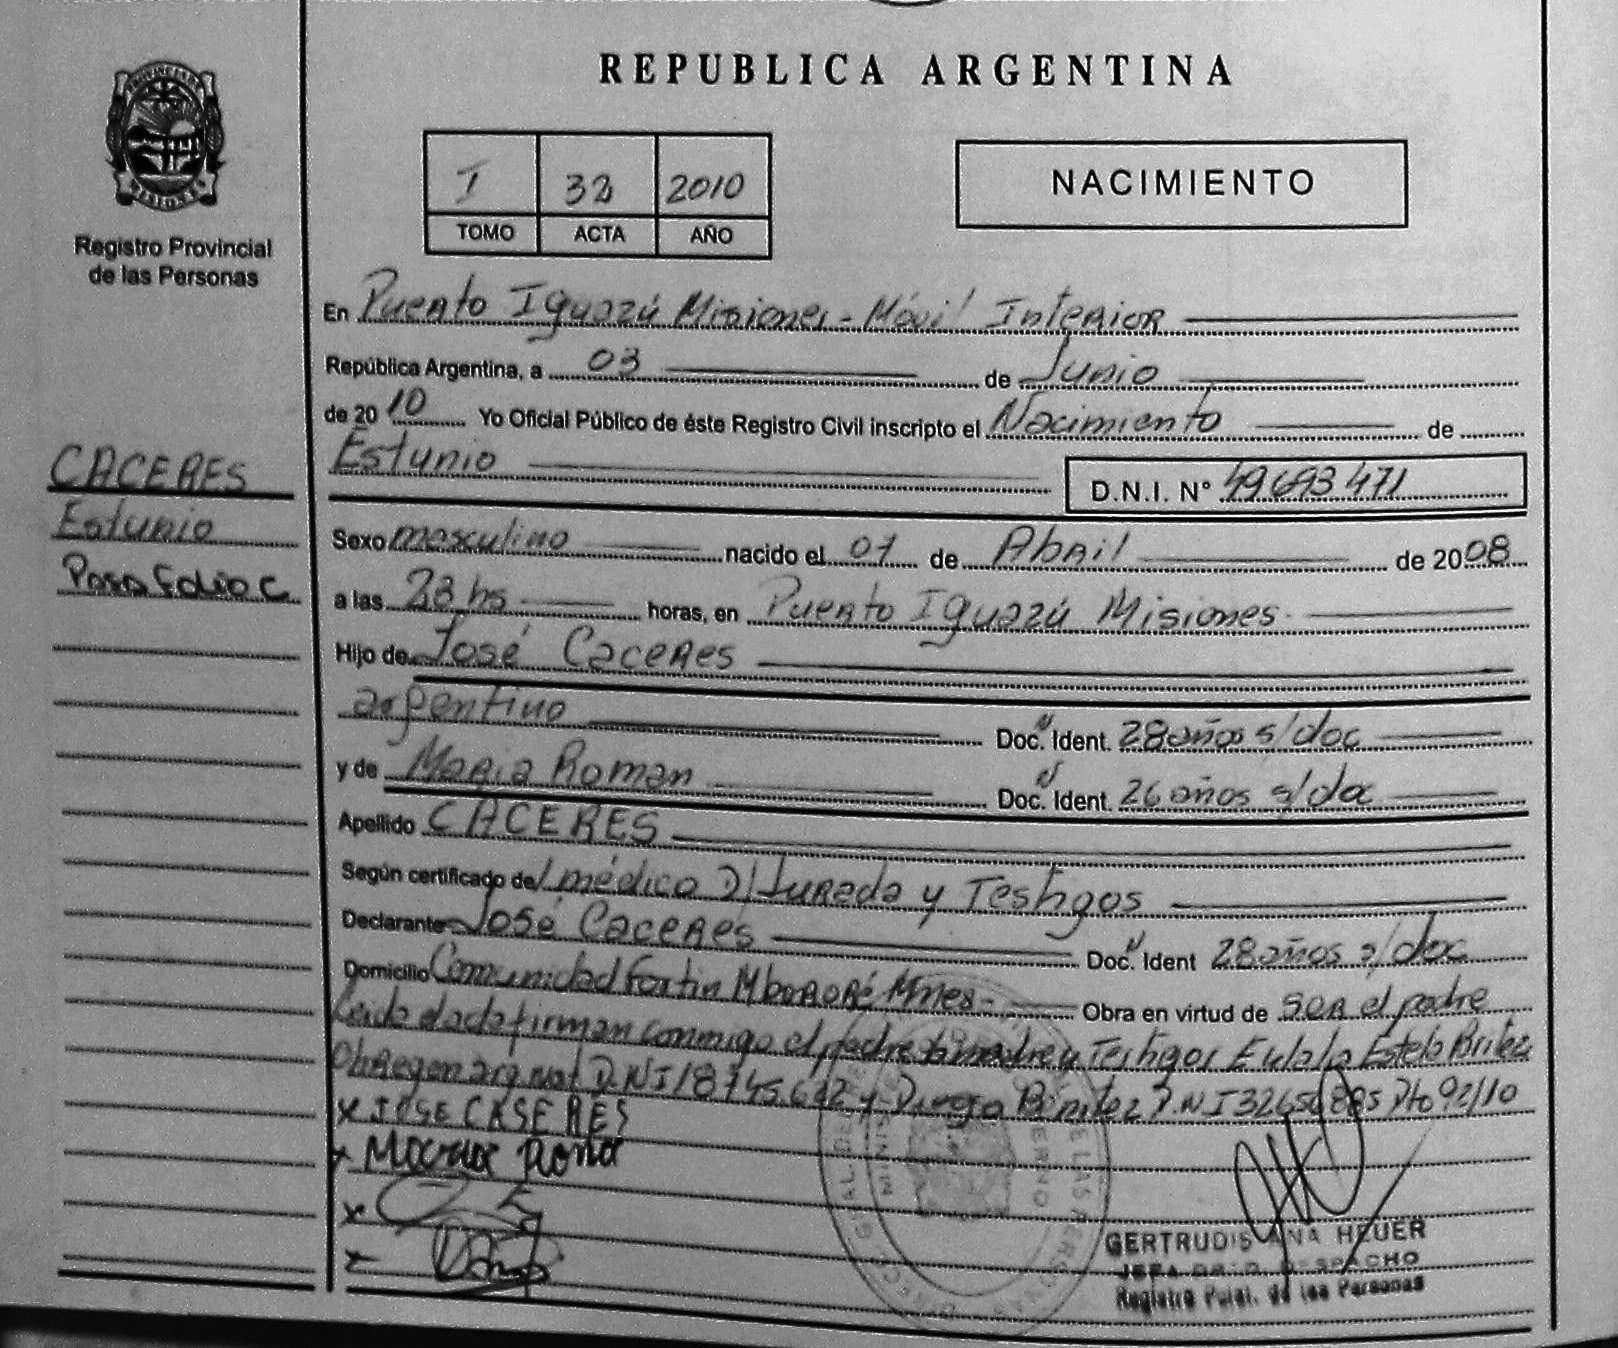 REPUBLICA ARGENTINA
PROVINCIA DE
MISIONES
Registro Provincial
de las Personas
I 32 2010
TOMO ACTA AÑO
NACIMIENTO
En Puerto Iguazú Misiones - Móvil Interior
República Argentina, a 03 de Junio
de 2010 Yo Oficial Público de éste Registro Civil inscripto el Nacimiento de
Estunio
D.N.I. N° 49693471
CACERES
Estunio
Pasa Folio C
Sexo masculino nacido el 07 de Abril de 2008
a las 23 hs horas, en Puerto Iguazú Misiones
Hijo de José Caceres
argentino Doc. Ident. 28 años s/doc
y de Maria Roman Doc. Ident. 26 años s/doc
Apellido CACERES
Según certificado del médico D/Jurada y Testigos
Declarante José Caceres Doc. Ident 28 años s/doc
Domicilio Comunidad Fortin Mbororé Mnes - Obra en virtud de ser el padre
Leida el acta firman conmigo el padre la madre y Testigos Eulalia Estela Britez
Obregon arg nat D.N.I 18745.632 y Benitez D.N I 32650885 Dto 92/10
x JOSE CASERES
x
x
x
GERTRUDIS ANA HEUER
JEFA DPTO DESPACHO
Registro Pcial. de las Personas